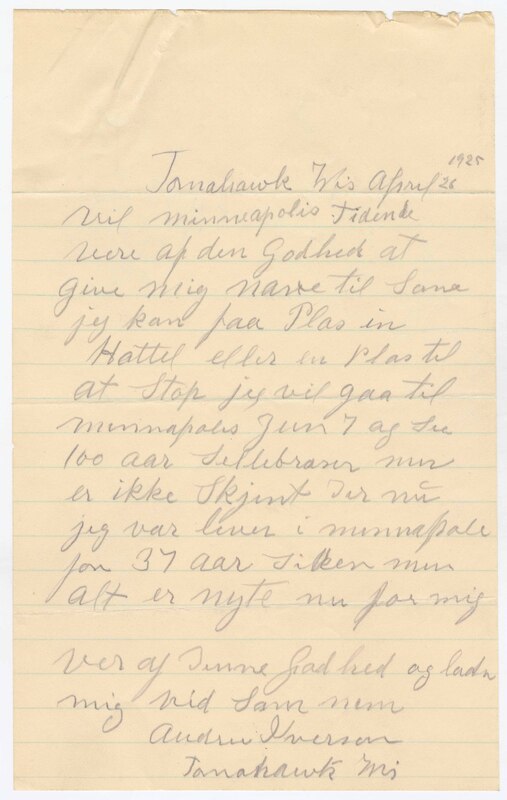 1925
Tomahawk Wis April 26
Vil minneapolis Tidende
vere af den Godhed at
give mig nave til Some
jeg kan faa Plas in
Hattel eller en Plas til
at Stop jeg vil gaa til
minnapolis Jun 7 og See
100 aar Sellebraser men
er ikke Skjent der nu
jeg var lever i minnapole
for 37 aar siken men
alt er nyte nu for mig
Ver af denne Godhed og lade
mig vid Som nem
Andrew Iverson
Tomahawk Wis